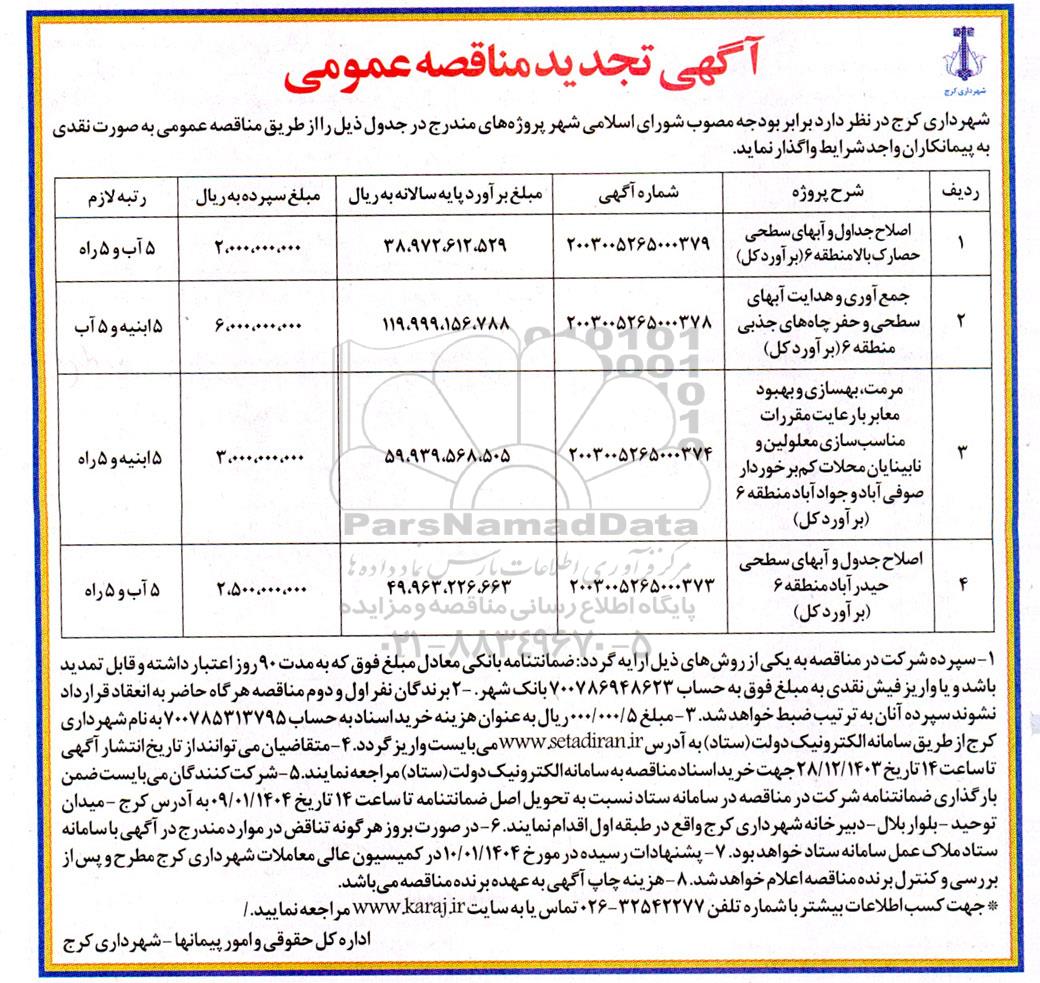 آگهی تجدید مناقصه عمومی
شهرداری کرج
شهرداری کرج در نظر دارد برابر بودجه مصوب شورای اسلامی شهر پروژه‌های مندرج در جدول ذیل را از طریق مناقصه عمومی به صورت نقدی
به پیمانکاران واجد شرایط واگذار نماید.
ردیف شرح پروژه شماره آگهی مبلغ برآورد پایه سالانه به ریال مبلغ سپرده به ریال رتبه لازم
۱ اصلاح جداول و آبهای سطحی
حصارک بالا منطقه ۶ (برآورد کل) ۲۰۰۳۰۰۵۲۶۵۰۰۰۳۷۹ ۳۸،۹۷۲،۶۱۲،۵۲۹ ۲،۰۰۰،۰۰۰،۰۰۰ ۵ آب و ۵ راه
۲ جمع آوری و هدایت آبهای
سطحی و حفر چاه‌های جذبی
منطقه ۶ (برآورد کل) ۲۰۰۳۰۰۵۲۶۵۰۰۰۳۷۸ ۱۱۹،۹۹۹،۱۵۶،۷۸۸ ۶،۰۰۰،۰۰۰،۰۰۰ ۵ ابنیه و ۵ آب
۳ مرمت، بهسازی و بهبود
معابر با رعایت مقررات
مناسب سازی معلولین و
نابینایان محلات کم برخوردار
صوفی آباد و جواد آباد منطقه ۶
(برآورد کل) ۲۰۰۳۰۰۵۲۶۵۰۰۰۳۷۴ ۵۹،۹۳۹،۵۶۸،۵۰۵ ۳،۰۰۰،۰۰۰،۰۰۰ ۵ ابنیه و ۵ راه
۴ اصلاح جدول و آبهای سطحی
حیدرآباد منطقه ۶
(برآورد کل) ۲۰۰۳۰۰۵۲۶۵۰۰۰۳۷۳ ۴۹،۹۶۳،۲۲۶،۶۶۳ ۲،۵۰۰،۰۰۰،۰۰۰ ۵ آب و ۵ راه
ParsNamadData
مرکز فرآوری اطلاعات پارس نماد داده ها
پایگاه اطلاع رسانی مناقصه و مزایده
۰۲۱-۸۸۳۴۹۶۷۰-۵
۱- سپرده شرکت در مناقصه به یکی از روش‌های ذیل ارایه گردد: ضمانتنامه بانکی معادل مبلغ فوق که به مدت ۹۰ روز اعتبار داشته و قابل تمدید
باشد و یا واریز فیش نقدی به مبلغ فوق به حساب ۷۰۰۷۸۶۹۴۸۶۲۳ بانک شهر. ۲- برندگان نفر اول و دوم مناقصه هرگاه حاضر به انعقاد قرارداد
نشوند سپرده آنان به ترتیب ضبط خواهد شد. ۳- مبلغ ۰۰۰/۰۰۰/۵ ریال به عنوان هزینه خرید اسناد به حساب ۷۰۰۷۸۵۳۱۳۷۹۵ به نام شهرداری
کرج از طریق سامانه الکترونیک دولت (ستاد) به آدرس www.setadiran.ir می‌بایست واریز گردد. ۴- متقاضیان می‌توانند از تاریخ انتشار آگهی
تا ساعت ۱۴ تاریخ ۲۸/۱۲/۱۴۰۳ جهت خرید اسناد مناقصه به سامانه الکترونیک دولت (ستاد) مراجعه نمایند. ۵- شرکت کنندگان می‌بایست ضمن
بارگذاری ضمانتنامه شرکت در مناقصه در سامانه ستاد نسبت به تحویل اصل ضمانتنامه تا ساعت ۱۴ تاریخ ۰۹/۰۱/۱۴۰۴ به آدرس کرج - میدان
توحید - بلوار بلال - دبیرخانه شهرداری کرج واقع در طبقه اول اقدام نمایند. ۶- در صورت بروز هرگونه تناقض در موارد مندرج در آگهی با سامانه
ستاد ملاک عمل سامانه ستاد خواهد بود. ۷- پیشنهادات رسیده در مورخ ۱۰/۰۱/۱۴۰۴ در کمیسیون عالی معاملات شهرداری کرج مطرح و پس از
بررسی و کنترل برنده مناقصه اعلام خواهد شد. ۸- هزینه چاپ آگهی به عهده برنده مناقصه می‌باشد.
* جهت کسب اطلاعات بیشتر با شماره تلفن ۳۲۵۴۲۲۷۷-۰۲۶ تماس یا به سایت www.karaj.ir مراجعه نمایید./
اداره کل حقوقی و امور پیمانها - شهرداری کرج